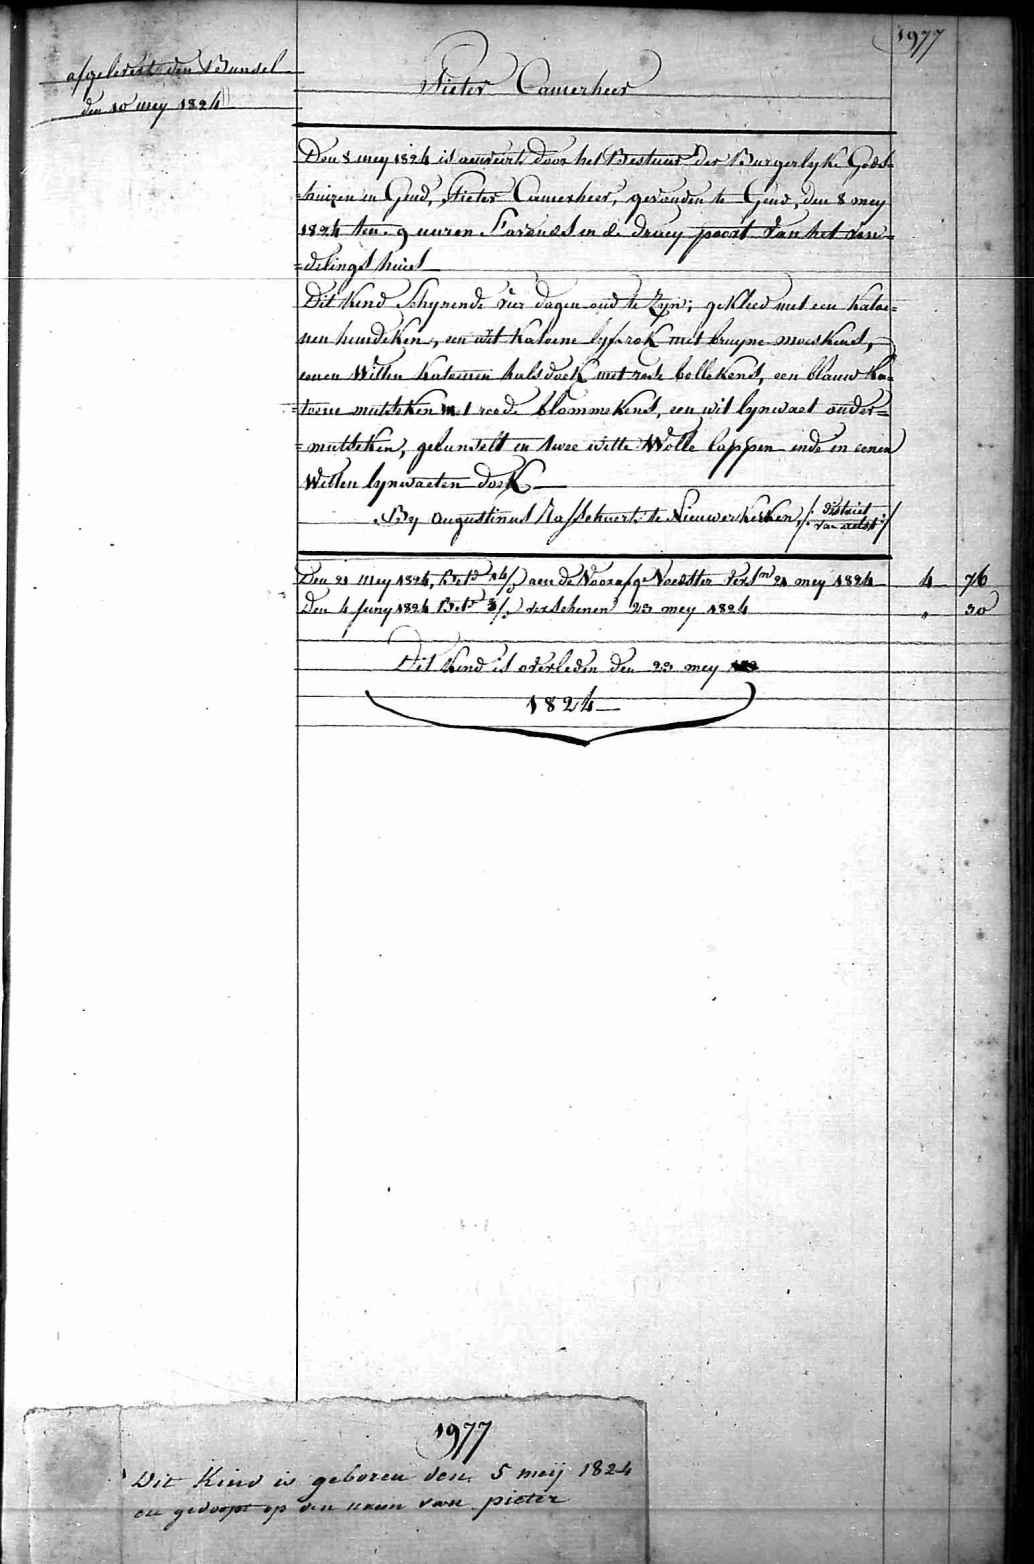 1977
afgelevert den Bundel
den 10 mey 1824
Pieter Camerheer
Den 8 mey 1824 is aenveirt door het Bestuur der Burgerlyke Gods=
=huizen in Gend, Pieter Camerheer, gevonden te Gend, den 8 mey
1824 ten 9 uuren S'avonds in de draey poort van het von=
=delings huis
Dit Kind Schynende vier dagen oud te Zyn; gekleed met een Katoe=
nen hemdeken, een wit Katoene lyfrok met bruyne moeskens,
eenen Witten Katoenen halsdoek met roode bollekens, een blauw Ka=
toene mutseken met roode blommekens, een wit lynwaet onder=
=mutseken, gebunselt in twee witte Wolle lappen ende in eenen
Witten lynwaeten doek
By augustinus te Nieuwerkerken /: district
van aelst :/
Den 21 mey 1824, Bet. 14/ aen de Vooraf. Voedster vers.n 21 mey 1824 4 76
Den 4 Juny 1824 Bet. 3/ verschenen 23 mey 1824 " 30
Dit Kind is overleden den 23 mey
1824
1977
Dit Kind is geboren den 5 meij 1824
en gedoopt op den naem van pieter